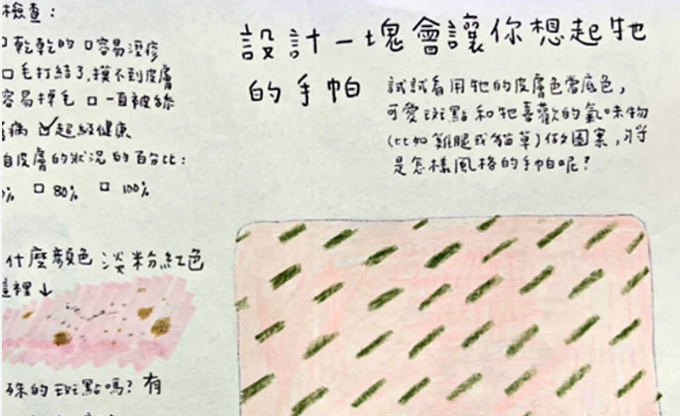 檢查：
□ 乾乾的 □ 容易溼疹
□ 毛打結了,摸不到皮膚
容易掉毛 □ 一直被
病 ☑ 超級健康
皮膚的狀況的百分比：
% □ 80% □ 100%
什麼顏色 淡粉紅色
這裡↓
殊的斑點嗎? 有
設計一塊會讓你想起牠
的手帕
試試看用牠的皮膚色當底色，
可愛斑點和牠喜歡的氣味物
(比如雞腿或貓草)做圖案，將
是怎樣風格的手帕呢？